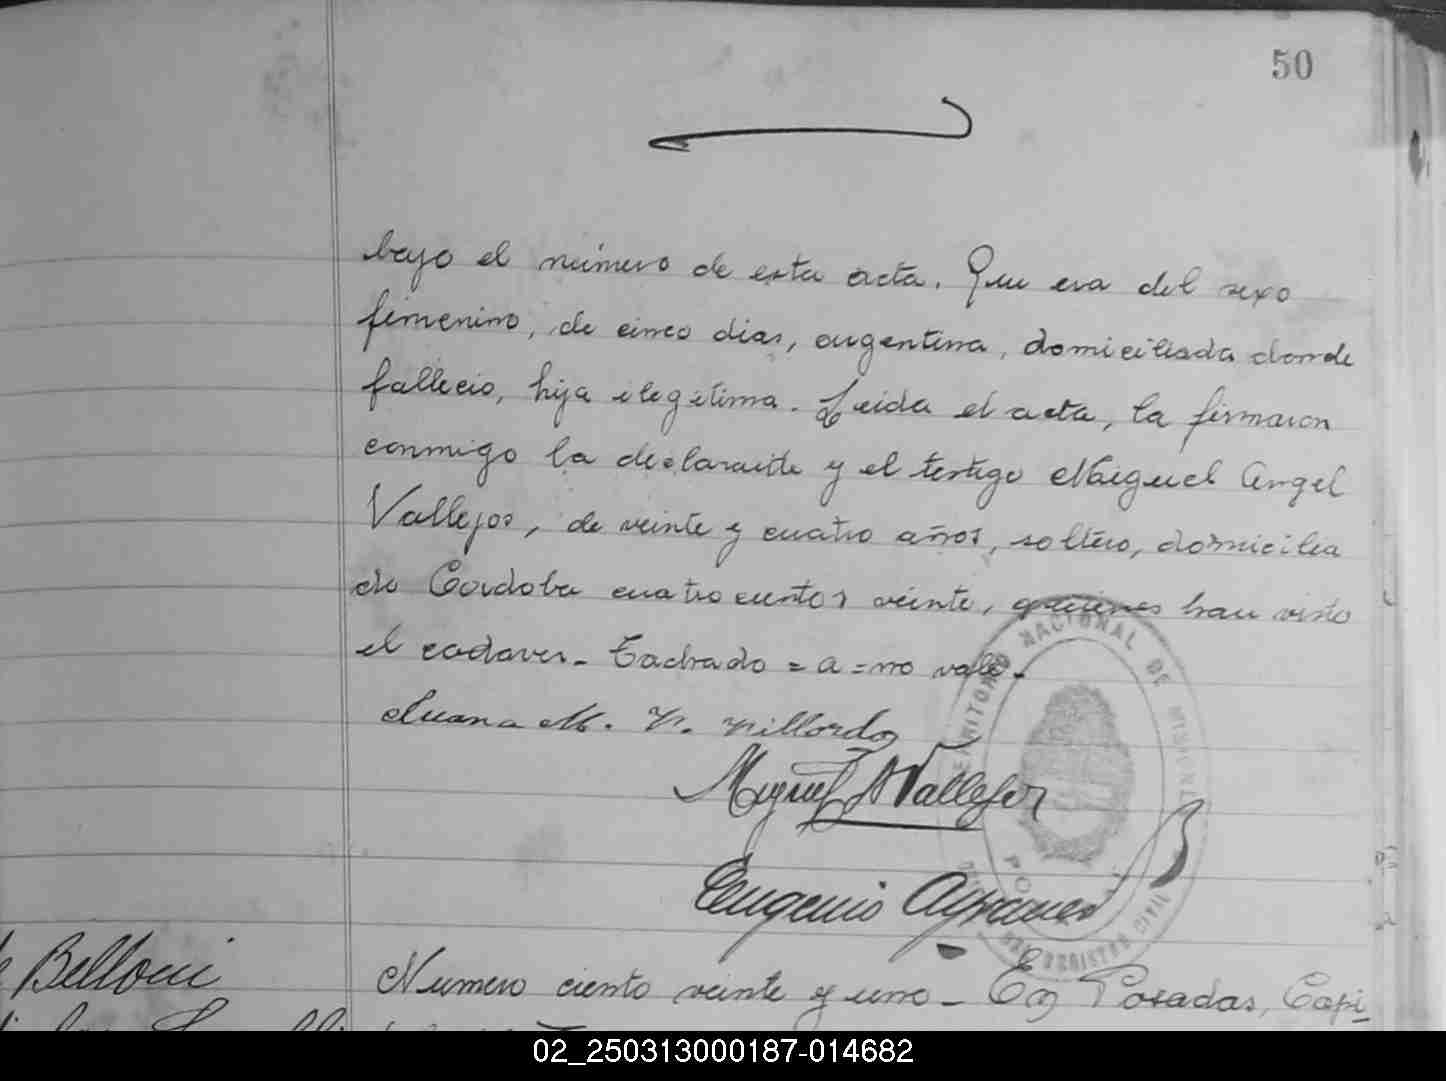 50
bajo el número de esta acta. Que era del sexo
femenino, de cinco dias, argentina, domiciliada donde
fallecio, hija ilegitima. Leida el acta, la firmaron
conmigo la declarante y el testigo Miguel Angel
Vallejos, de veinte y cuatro años, soltero, domicilia
do Cordoba cuatrocientos veinte, quienes han visto
el cadaver. Tachado = a = no vale.
Juana M. V. Villordo
Miguel A Vallejos
Eugenio
TERRITORIO NACIONAL DE MISIONES
REGISTRO CIVIL
Belloni
Numero ciento veinte y uno - En Posadas, Capi_
02_250313000187-014682